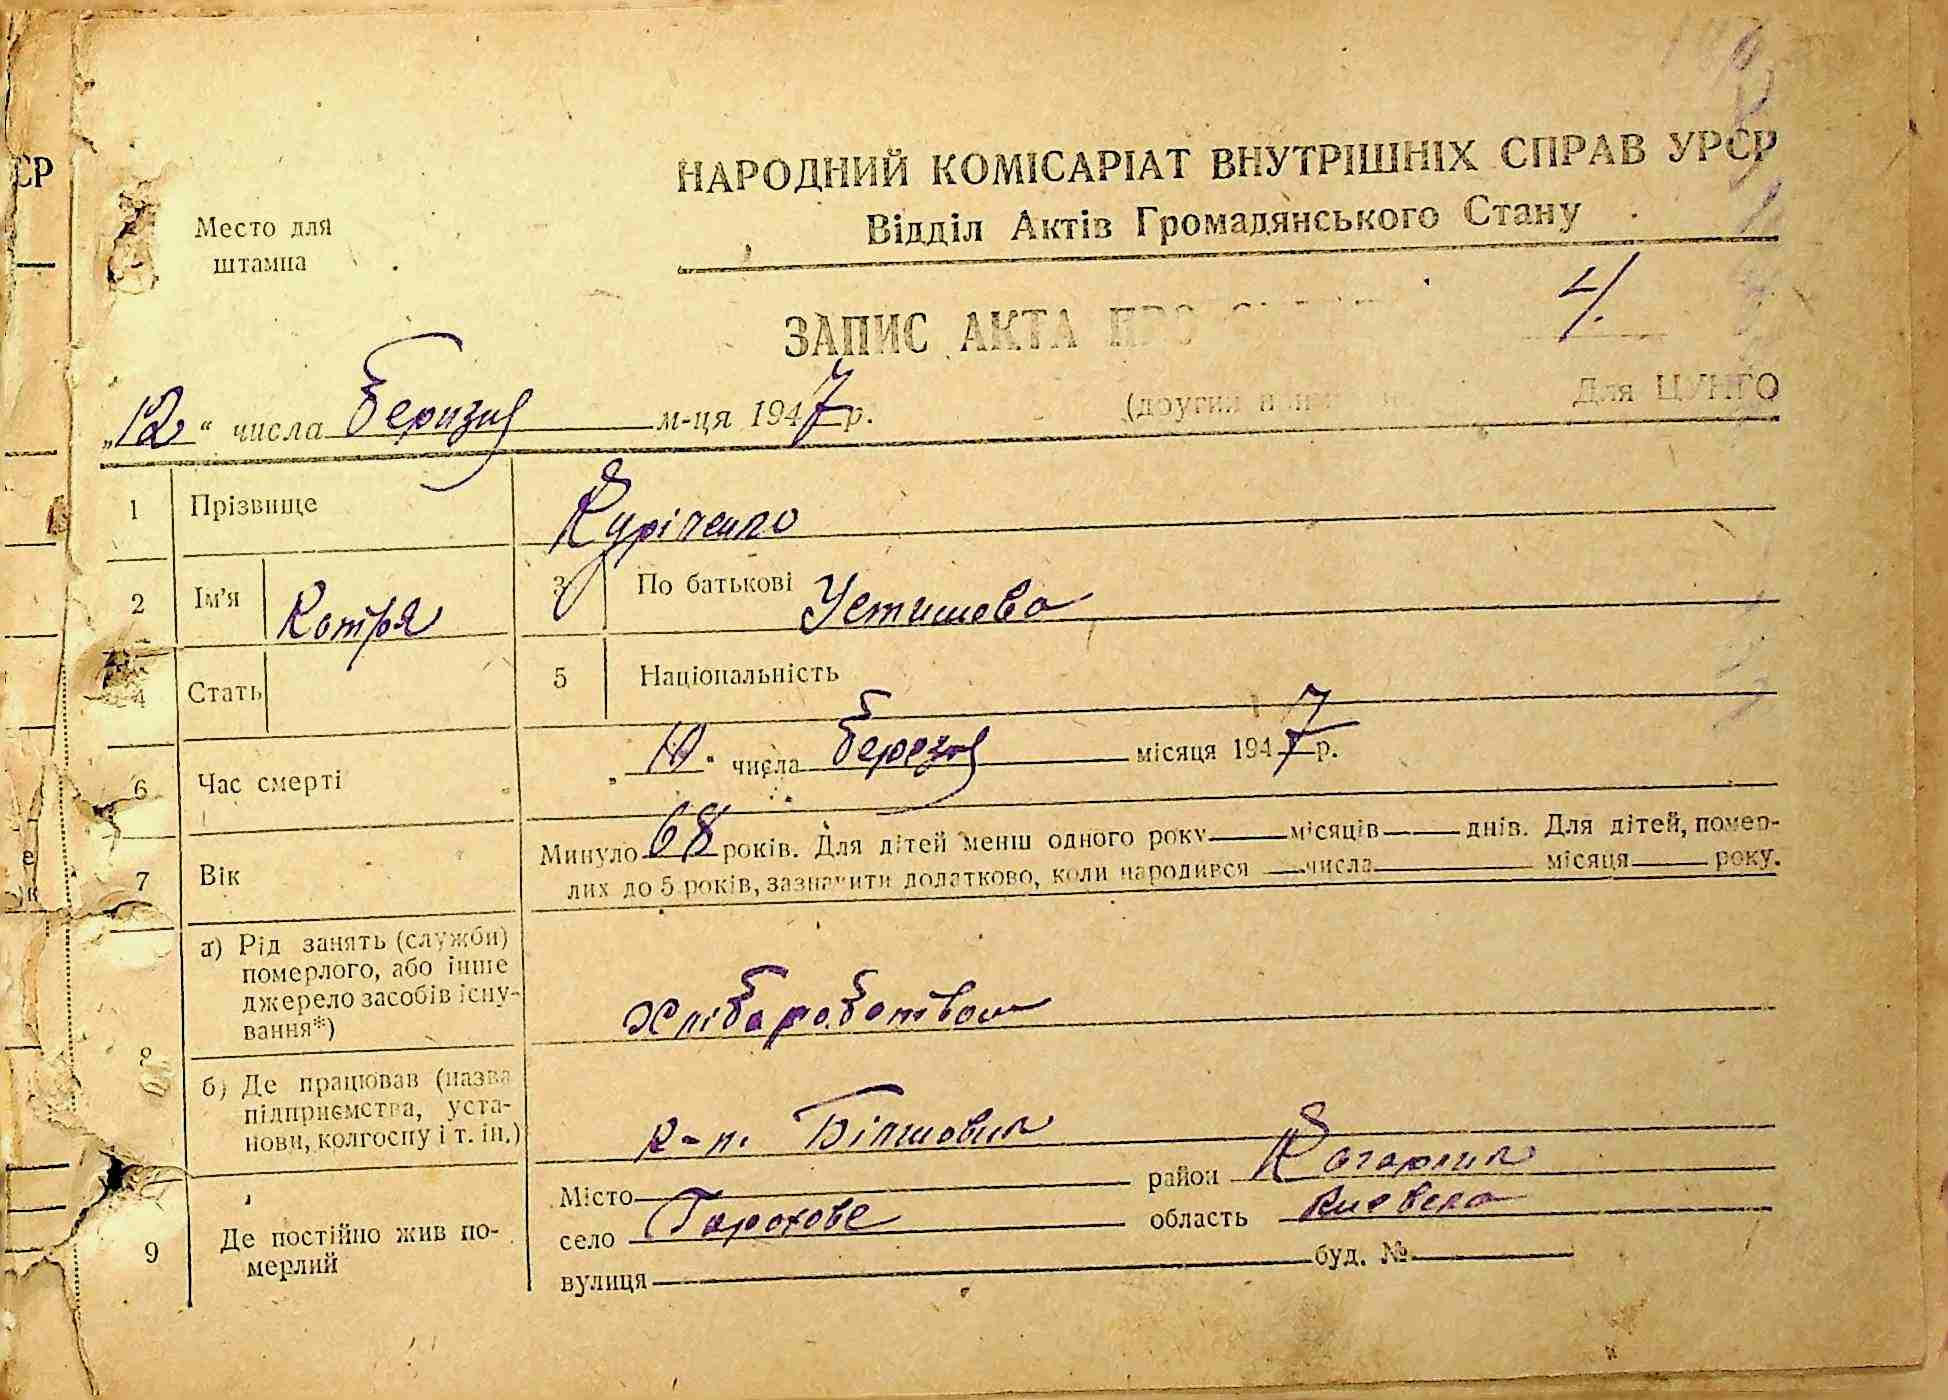 СР
НАРОДНИЙ КОМІСАРІАТ ВНУТРІШНІХ СПРАВ УРСР
Відділ Актів Громадянського Стану
Место для
штампа
ЗАПИС АКТА ПРО 4.
„12“ числа Беризня м-ця 1947 р. Для ЦУНГО
1 Прізвище Куріченко
2 Ім'я Котря 3 По батькові Устимова
4 Стать 5 Національність
6 Час смерті „10“ числа березня місяця 1947 р.
7 Вік Минуло 68 років. Для дітей менш одного року місяців днів. Для дітей, помер-
лих до 5 років, зазначити додатково, коли народився числа місяця року.
8 а) Рід занять (служби)
померлого, або інше
джерело засобів існу-
вання*)
Хлібаработвом
б) Де працював (назва
підприємства, уста-
нови, колгоспу і т. ін.)
к-п. Більшовик
9 Де постійно жив по-
мерлий
Місто район Кагарлик
село Горохове область Киевска
вулиця буд. №